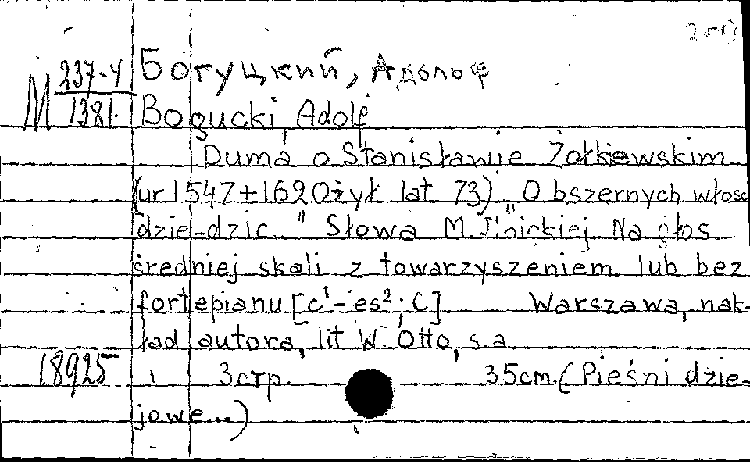 М 237-4/1381 Богуцкий, Адольф
Bogucki, Adolf
Duma o Stanisławie Żołkiewskim
(ur 1547 + 1620 żył lat 73) "Obszernych włosc
dzie-dzic." Słowa M. Ilnickiej. Na głos
średniej skali z towarzyszeniem lub bez
fortepianu [c¹-es²; C] Warszawa, nak-
ład autora, lit W. Otto, s.a.
18925 3 стр. 35cm. (Pieśni dzie-
jowe...)